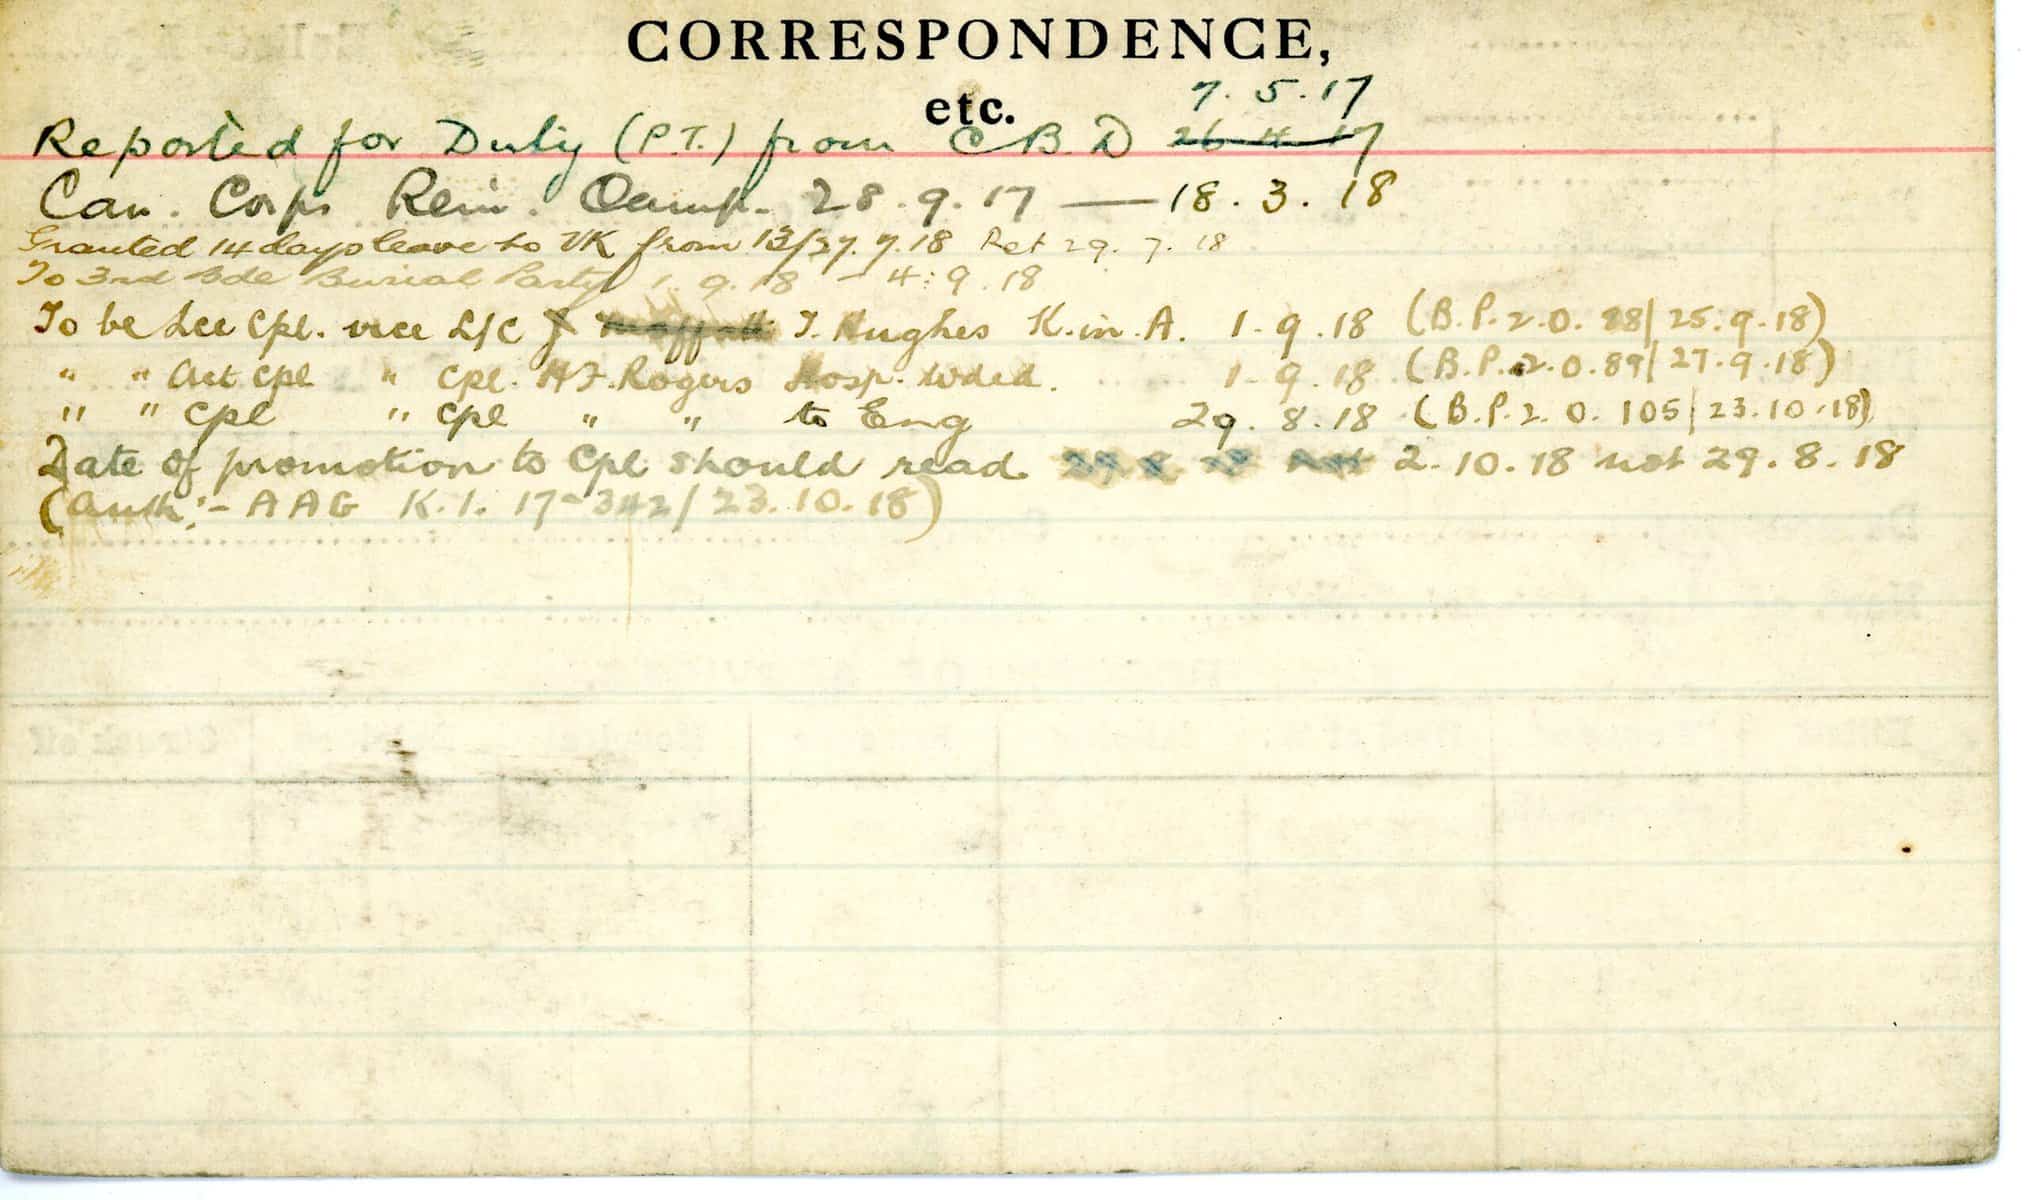 CORRESPONDENCE,
etc.
7.5.17
Reported for Duty (P.T.) from C B D 26 4 17
Can. Corps Rein. Camp. 28.9.17 — 18.3.18
Granted 14 days leave to UK from 13/27.7.18 Ret 29.7.18
To 3rd Bde Burial Party 1.9.18 - 4.9.18
To be Lce Cpl. vice L/C J T. Hughes K. in. A. 1.9.18 (B.P.2.O. 88/25.9.18)
" " Act Cpl " Cpl. H.F. Rogers Hosp. Wded. 1.9.18 (B.P.2.O.89/27.9.18)
" " Cpl " Cpl " " to Eng 29.8.18 (B.P.2.O. 105/23.10.18)
Date of promotion to Cpl should read 2.10.18 not 29.8.18
(Auth:- AAG K.1. 17-342/23.10.18)